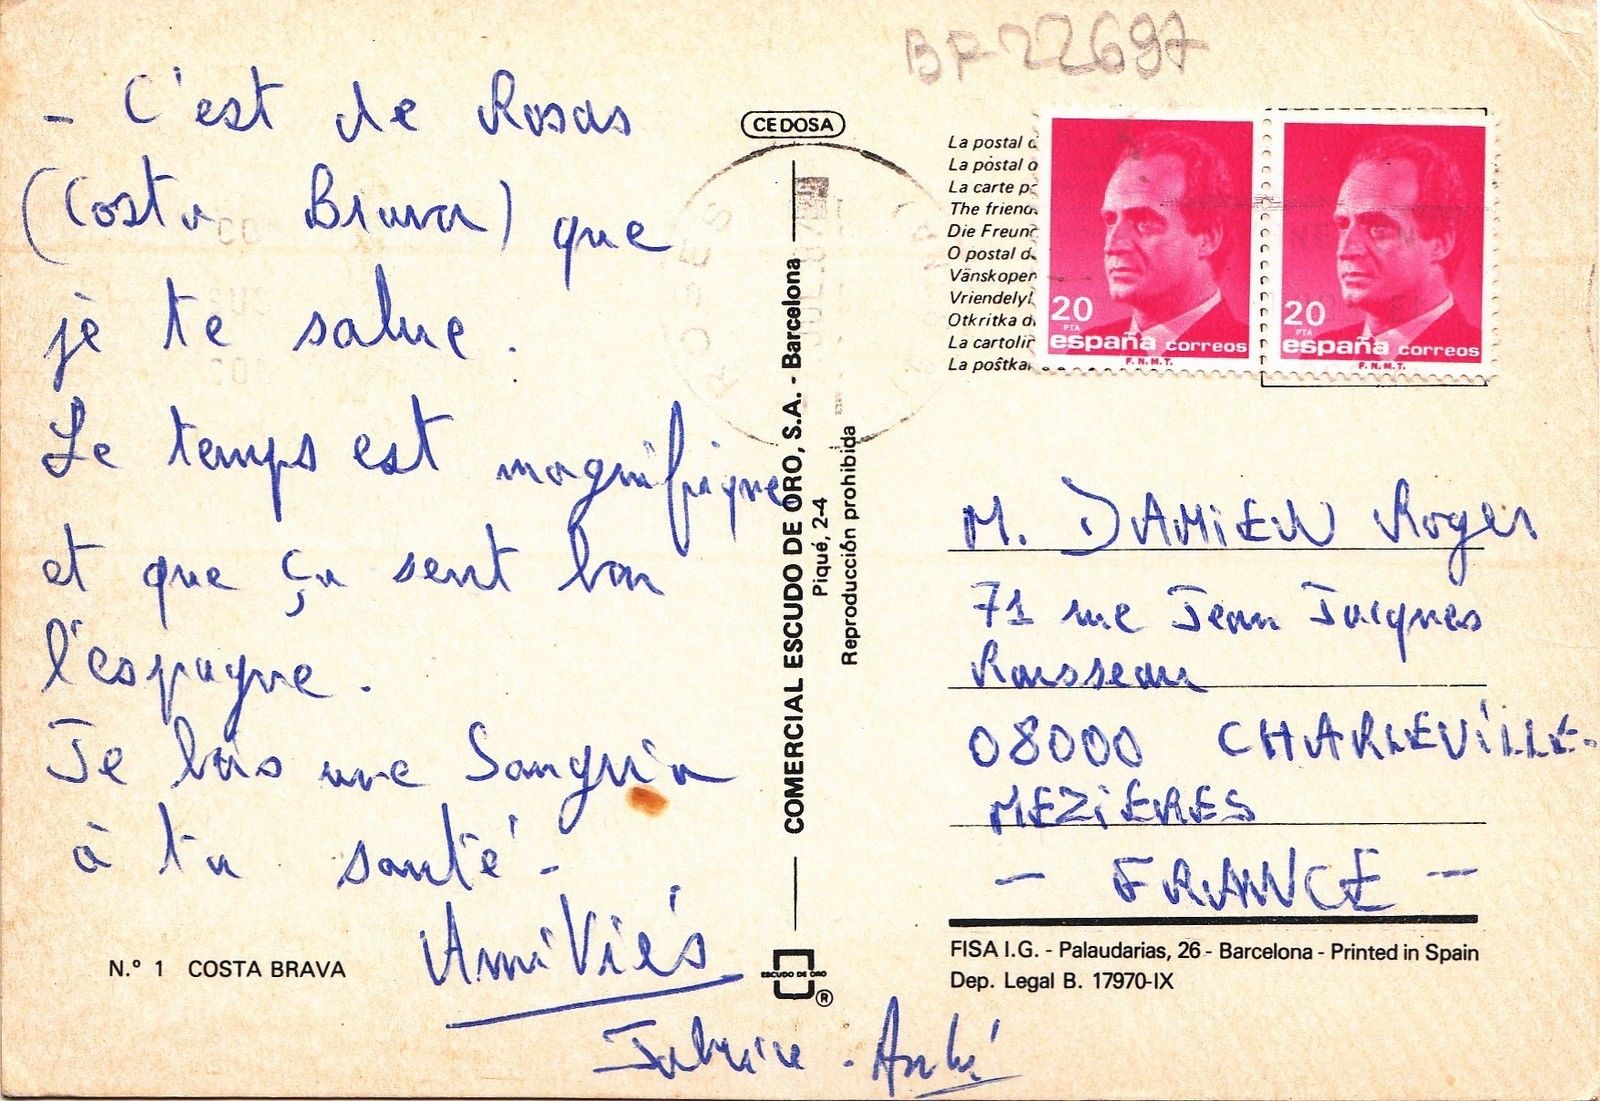 BF-22697
- C'est de Rosas
(Costa Brava) que
je te salue.
Le temps est magnifique
et que ça sent bon
l'espagne.
Je bois une Sangria
à ta santé -
AmiViés
Fabrice - André
N.º 1 COSTA BRAVA
CEDOSA
COMERCIAL ESCUDO DE ORO, S.A. - Barcelona
Piqué, 2-4
Reproducción prohibida
ESCUDO DE ORO
®
La postal d
La postal o
La carte po
The friend
Die Freund
O postal d
Vänskoper
Vriendelyl
Otkritka d
La cartolin
La poŝtkar
20
PTA
españa correos
F.N.M.T.
20
PTA
españa correos
F.N.M.T.
M. DAMIEN Roger
71 rue Jean Jacques
Rousseau
08000 CHARLEVILLE-
MEZIERES
- FRANCE -
FISA I.G. - Palaudarias, 26 - Barcelona - Printed in Spain
Dep. Legal B. 17970-IX